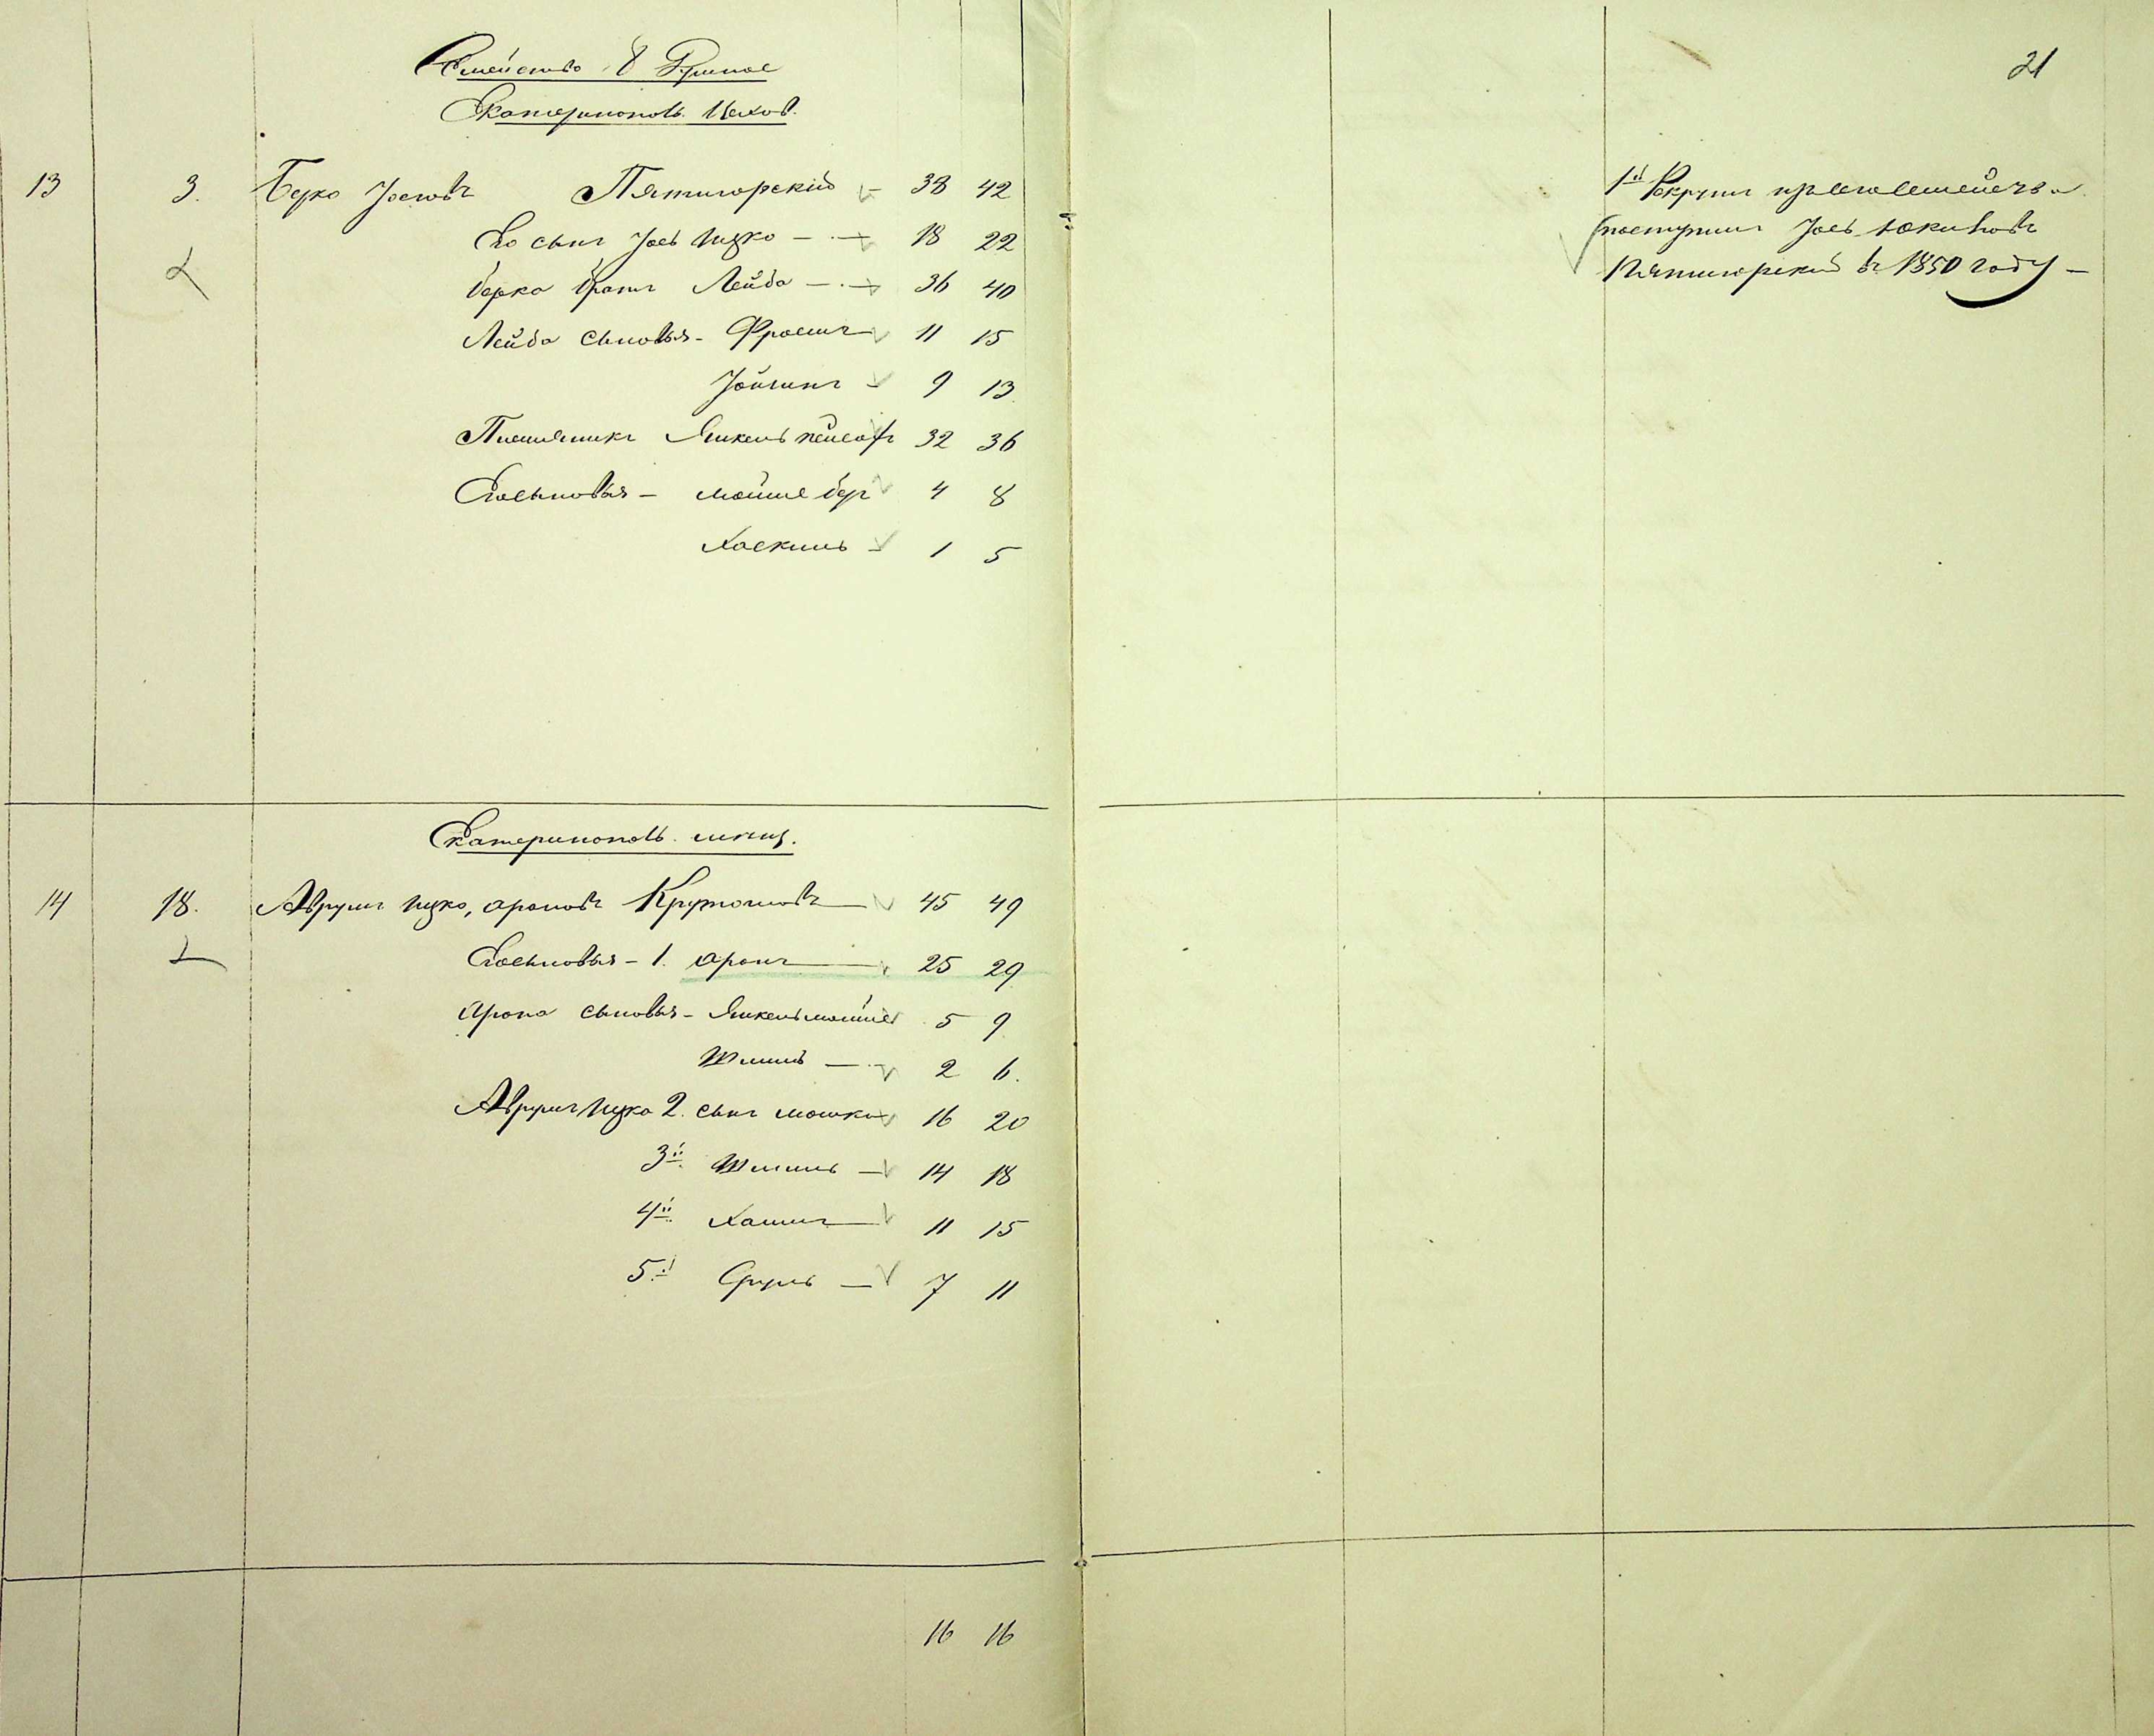 Семейство 8 Душное
Екатеринополь. Цехов.
21
13 3. Берко Іосьовъ Пятигорскій 38 42
Его сынъ Іось Ицко 18 22
Берка братъ Лейба 36 40
Лейба сыновья - Фроимъ 11 15
Іойнинъ 9 13
Племяникъ Янкель 32 36
Его сыновья - Мойше Бер 4 8
Хаскиль 1 5
1й Рекрутъ из сего семейства
поступил Іось
Пятигорскій въ 1850 году -
Екатеринополь. мѣщ.
14 18. Аврумъ Ицко, Ароновъ 45 49
Его сыновья - 1. Аронъ 25 29
Арона сыновья - Янкель Мойше 5 9
Шмиль 2 6.
Аврумъ Ицка 2. сынъ Мошко 16 20
3й Шмиль 14 18
4й Хаимъ 11 15
5й Сруль 7 11
16 16